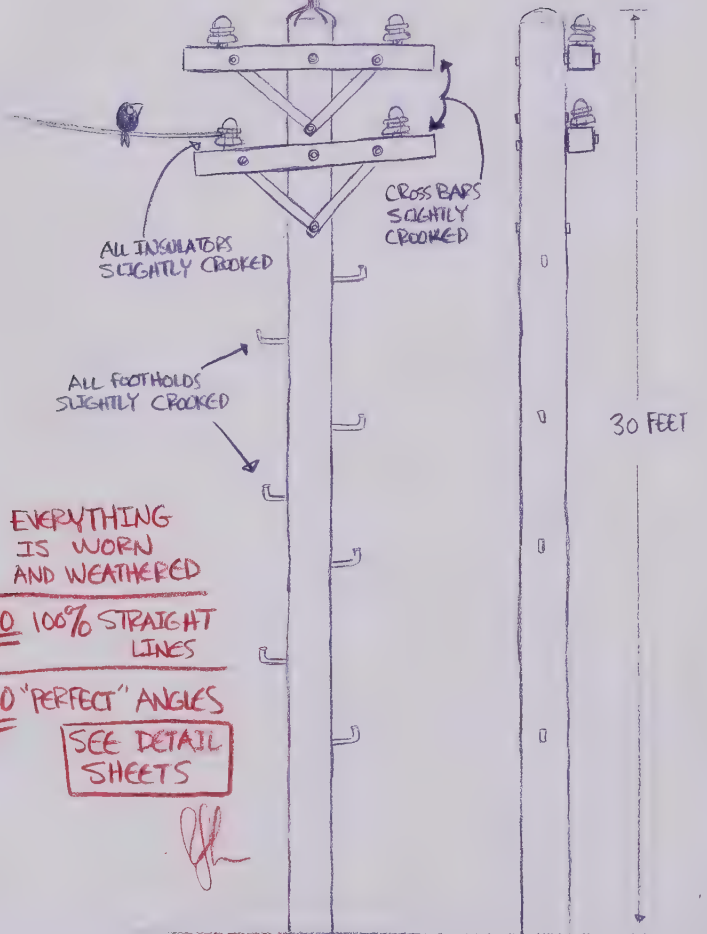 CROSS BARS
SLIGHTLY
CROOKED
ALL INSULATORS
SLIGHTLY CROOKED
ALL FOOTHOLDS
SLIGHTLY CROOKED
30 FEET
EVERYTHING
IS WORN
AND WEATHERED
O 100% STRAIGHT
LINES
O "PERFECT" ANGLES
SEE DETAIL
SHEETS